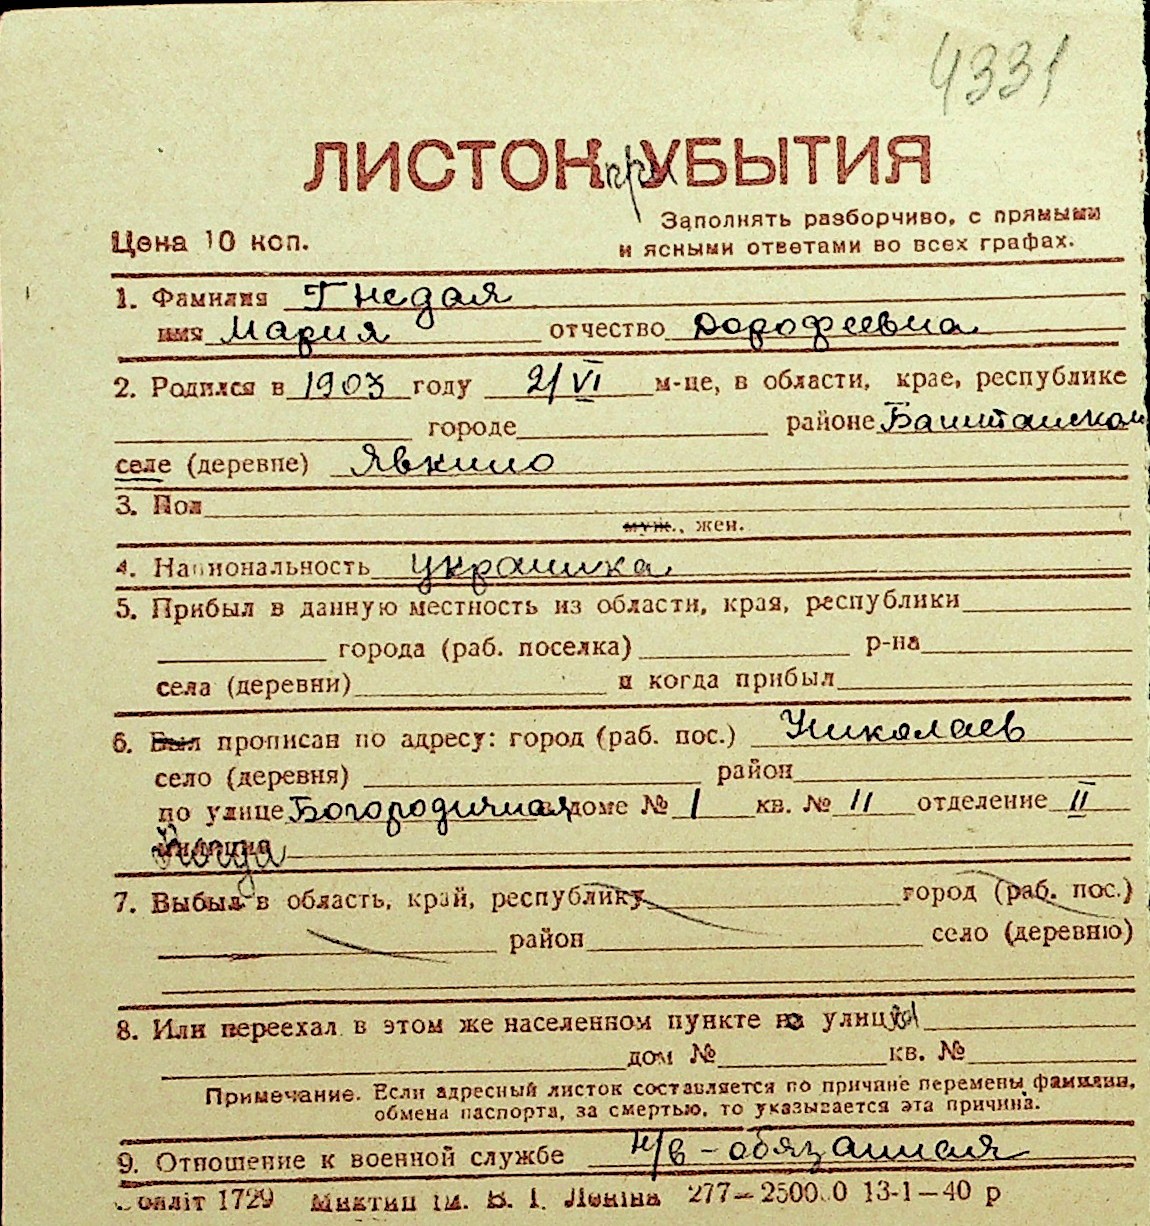 4331
ЛИСТОК при УБЫТИЯ
Заполнять разборчиво, с прямыми
Цена 10 коп.
и ясными ответами во всех графах.
1. Фамилия Гнедая
имя Мария отчество Дорофеевна
2. Родился в 1903 году 2/VI м-це, в области, крае, республике
городе районе Баштанском
селе (деревне) Явкино
3. Пол
муж., жен.
4. Национальность украинка
5. Прибыл в данную местность из области, края, республики
города (раб. поселка) р-на
села (деревни) и когда прибыл
6. Был прописан по адресу: город (раб. пос.) Николаев
село (деревня) район
по улице Богородичная в доме № 1 кв. № 11 отделение II
Когда
7. Выбыл в область, край, республику город (раб. пос.)
район село (деревню)
8. Или переехал в этом же населенном пункте на улицу
дом № кв. №
Примечание. Если адресный листок составляется по причине перемены фамилии,
обмена паспорта, за смертью, то указывается эта причина.
9. Отношение к военной службе н/в-обязанная
1729 ім. В. І. Леніна 277—2500.0 13-1—40 р